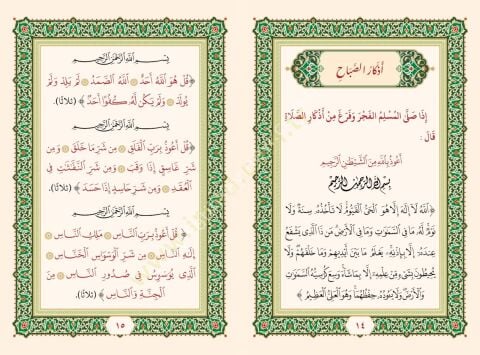 أَذْكَارُ الصَّبَاحِ
إِذَا صَلَّى المُسْلِمُ الفَجْرَ وَفَرَغَ مِنْ أَذْكَارِ الصَّلَاةِ
قَالَ:
أَعُوذُ بِاللَّهِ مِنَ الشَّيْطَانِ الرَّجِيمِ
بِسْمِ اللَّهِ الرَّحْمَٰنِ الرَّحِيمِ
﴿اللَّهُ لَا إِلَٰهَ إِلَّا هُوَ الْحَيُّ الْقَيُّومُ لَا تَأْخُذُهُ سِنَةٌ وَلَا
نَوْمٌ لَهُ مَا فِي السَّمَاوَاتِ وَمَا فِي الْأَرْضِ مَنْ ذَا الَّذِي يَشْفَعُ
عِنْدَهُ إِلَّا بِإِذْنِهِ يَعْلَمُ مَا بَيْنَ أَيْدِيهِمْ وَمَا خَلْفَهُمْ وَلَا
يُحِيطُونَ بِشَيْءٍ مِنْ عِلْمِهِ إِلَّا بِمَا شَاءَ وَسِعَ كُرْسِيُّهُ السَّمَاوَاتِ
وَالْأَرْضَ وَلَا يَئُودُهُ حِفْظُهُمَا وَهُوَ الْعَلِيُّ الْعَظِيمُ﴾
١٤
بِسْمِ اللَّهِ الرَّحْمَٰنِ الرَّحِيمِ
﴿قُلْ هُوَ اللَّهُ أَحَدٌ ۝ اللَّهُ الصَّمَدُ ۝ لَمْ يَلِدْ وَلَمْ
يُولَدْ ۝ وَلَمْ يَكُنْ لَهُ كُفُوًا أَحَدٌ﴾ (ثلاثًا).
بِسْمِ اللَّهِ الرَّحْمَٰنِ الرَّحِيمِ
﴿قُلْ أَعُوذُ بِرَبِّ الْفَلَقِ ۝ مِنْ شَرِّ مَا خَلَقَ ۝ وَمِنْ
شَرِّ غَاسِقٍ إِذَا وَقَبَ ۝ وَمِنْ شَرِّ النَّفَّاثَاتِ فِي
الْعُقَدِ ۝ وَمِنْ شَرِّ حَاسِدٍ إِذَا حَسَدَ﴾ (ثلاثًا).
بِسْمِ اللَّهِ الرَّحْمَٰنِ الرَّحِيمِ
﴿قُلْ أَعُوذُ بِرَبِّ النَّاسِ ۝ مَلِكِ النَّاسِ ۝
إِلَٰهِ النَّاسِ ۝ مِنْ شَرِّ الْوَسْوَاسِ الْخَنَّاسِ ۝
الَّذِي يُوَسْوِسُ فِي صُدُورِ النَّاسِ ۝ مِنَ
الْجِنَّةِ وَالنَّاسِ﴾ (ثلاثًا).
١٥